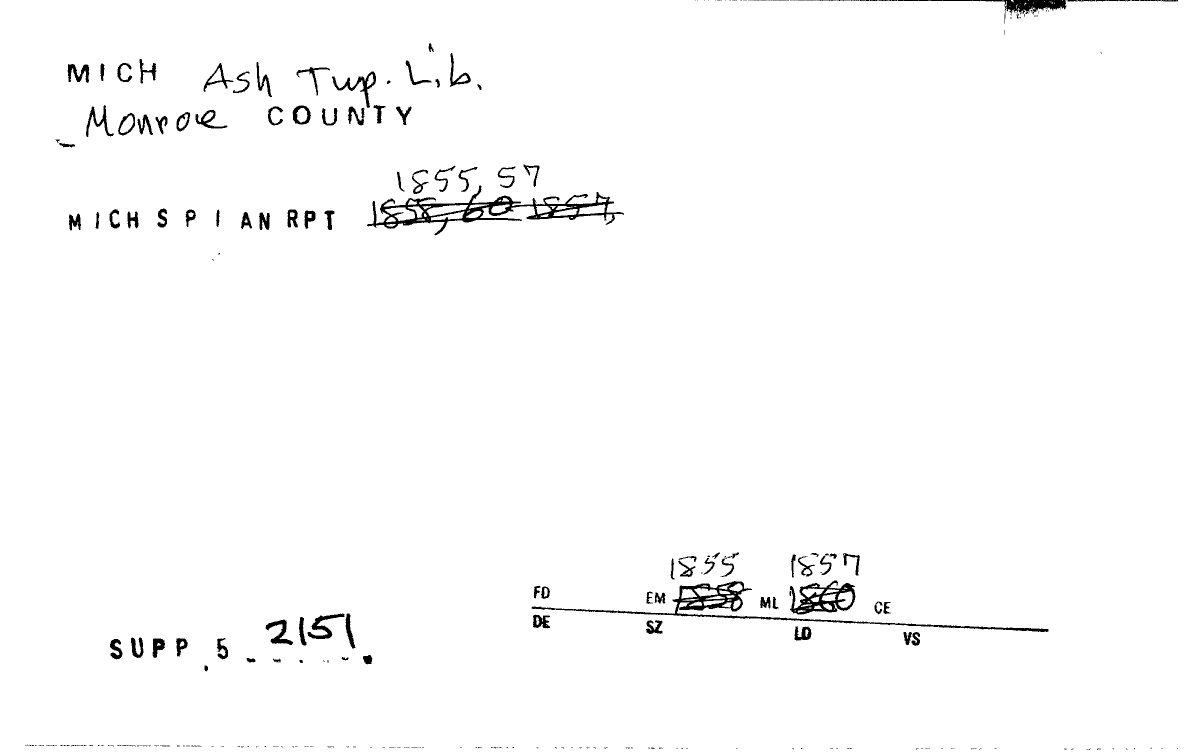 MICH Ash Twp. Lib.
Monroe COUNTY
1855, 57
MICH S P I AN RPT 1858, 60 1857,
1855 1857
FD EM 1858 ML 1860 CE
DE SZ LD VS
SUPP. 5 2151